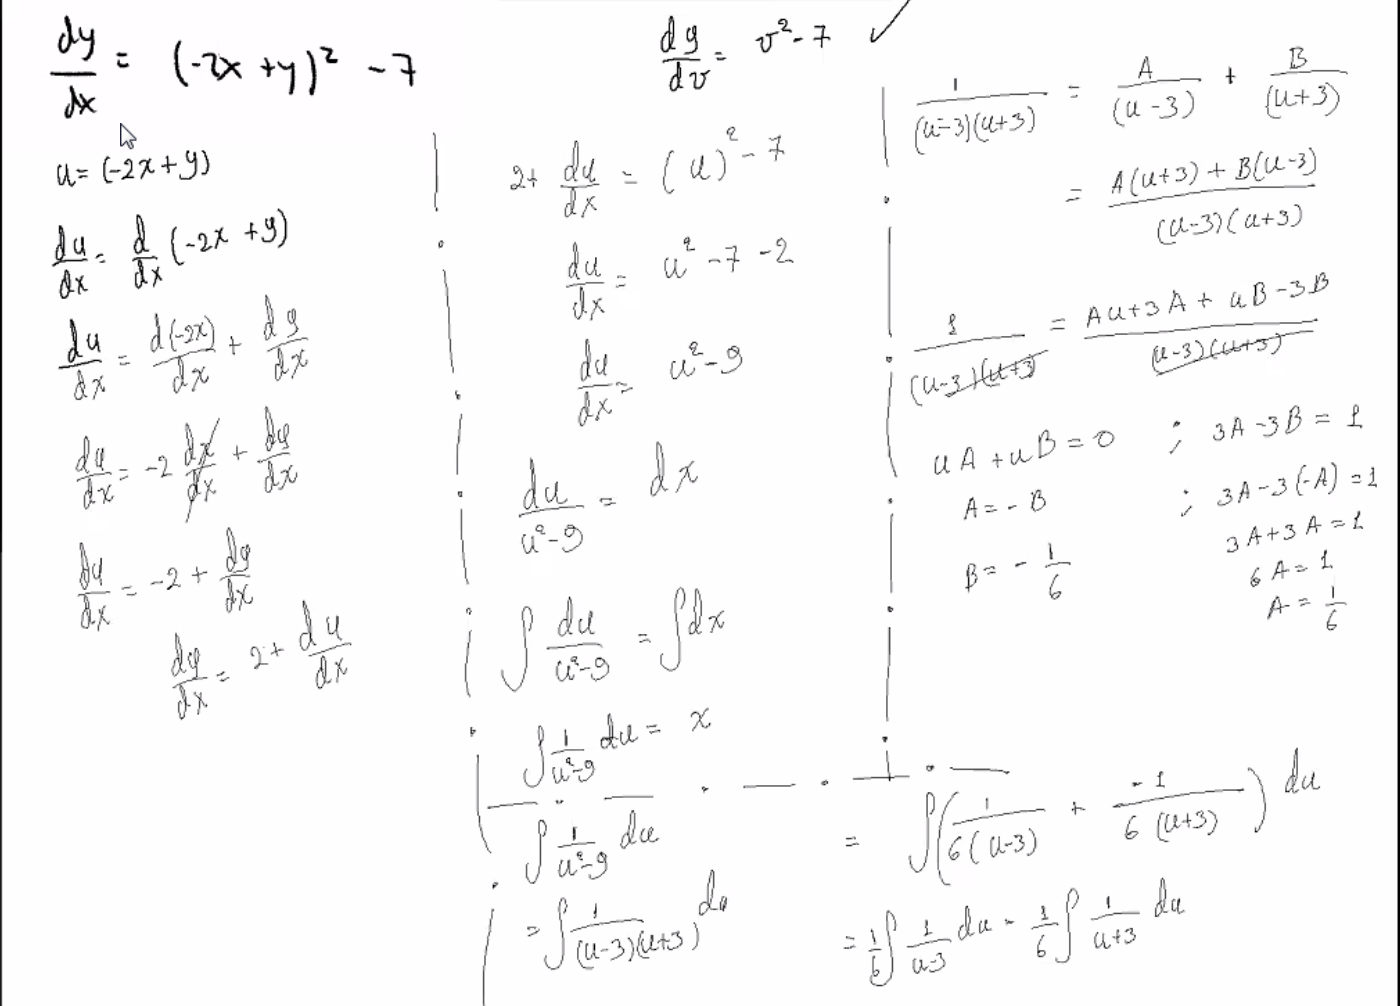 dy/dx = (-2x + y)² - 7
u = (-2x + y)
du/dx = d/dx (-2x + y)
du/dx = d(-2x)/dx + dy/dx
du/dx = -2 dx/dx + dy/dx
du/dx = -2 + dy/dx
dy/dx = 2 + du/dx
dy/dv = v² - 7 ✓
2 + du/dx = (u)² - 7
du/dx = u² - 7 - 2
du/dx = u² - 9
du/(u² - 9) = dx
∫ du/(u² - 9) = ∫ dx
∫ 1/(u² - 9) du = x
∫ 1/(u² - 9) du
= ∫ 1/((u - 3)(u + 3)) du
1/((u - 3)(u + 3)) = A/(u - 3) + B/(u + 3)
= (A(u + 3) + B(u - 3))/((u - 3)(u + 3))
1/((u - 3)(u + 3)) = (Au + 3A + uB - 3B)/((u - 3)(u + 3))
uA + uB = 0 ; 3A - 3B = 1
A = - B ; 3A - 3(-A) = 1
3A + 3A = 1
B = - 1/6
6A = 1
A = 1/6
= ∫ (1/(6(u - 3)) + -1/(6(u + 3))) du
= 1/6 ∫ 1/(u - 3) du - 1/6 ∫ 1/(u + 3) du